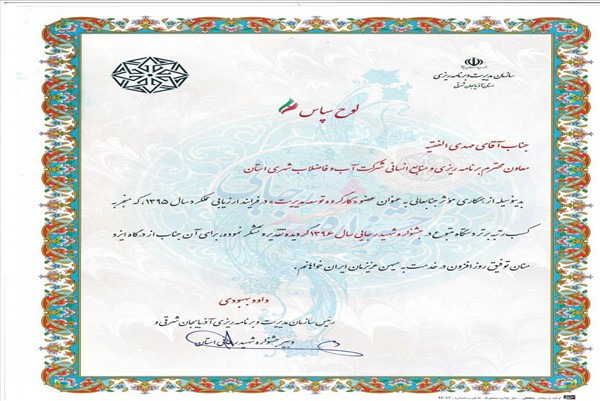 سازمان مدیریت و برنامه‌ریزی
استان آذربایجان شرقی
لوح سپاس
جناب آقای مهدی الفتیه
معاون محترم برنامه ریزی و منابع انسانی شرکت آب و فاضلاب شهری استان
بدینوسیله از همکاری مؤثر جنابعالی به عنوان عضو «کارگروه توسعه مدیریت» در فرایند ارزیابی عملکرد سال ۱۳۹۵، که منجر به
کسب رتبه برتر دستگاه متبوع در جشنواره شهید رجایی سال ۱۳۹۶ گردیده تقدیر و تشکر نموده، برای آن جناب از درگاه ایزد
منان توفیق روز افزون در خدمت به میهن عزیزمان ایران خواهانم.
داود بهبودی
رئیس سازمان مدیریت و برنامه ریزی آذربایجان شرقی و
دبیر جشنواره شهید رجایی استان